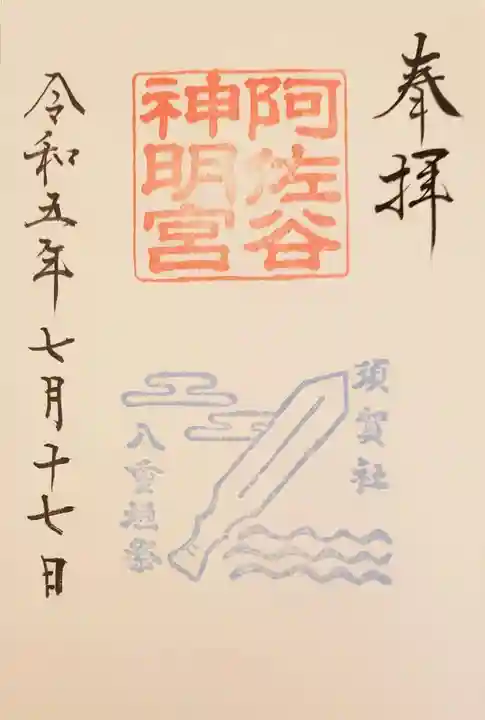 奉拝
阿佐谷
神明宮
須賀社
八重垣祭
令和五年七月十七日